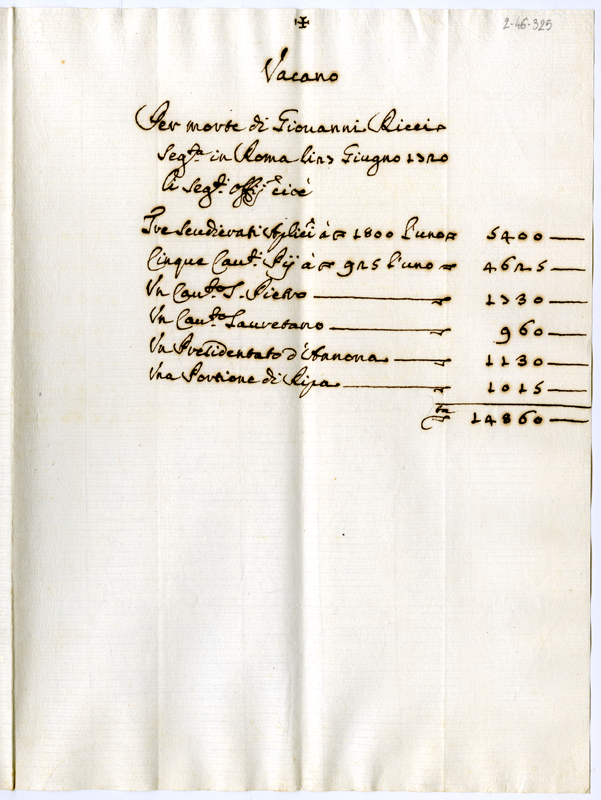 ✠
2-46-325
Vacano
Per morte di Giovanni Ricci
seg.ta in Roma li 23 Giugno 1720
li seg.ti offij cioè
Tre Scudierati Aplici à 1800 l'uno 5400
Cinque Cau.ti Pij à 925 l'uno 4625
Vn Cau.to S. Pietro 1730
Vn Cau.to Lauretano 960
Vn Presidentato d'Annona 1130
Vna Portione di Ripa 1015
14860